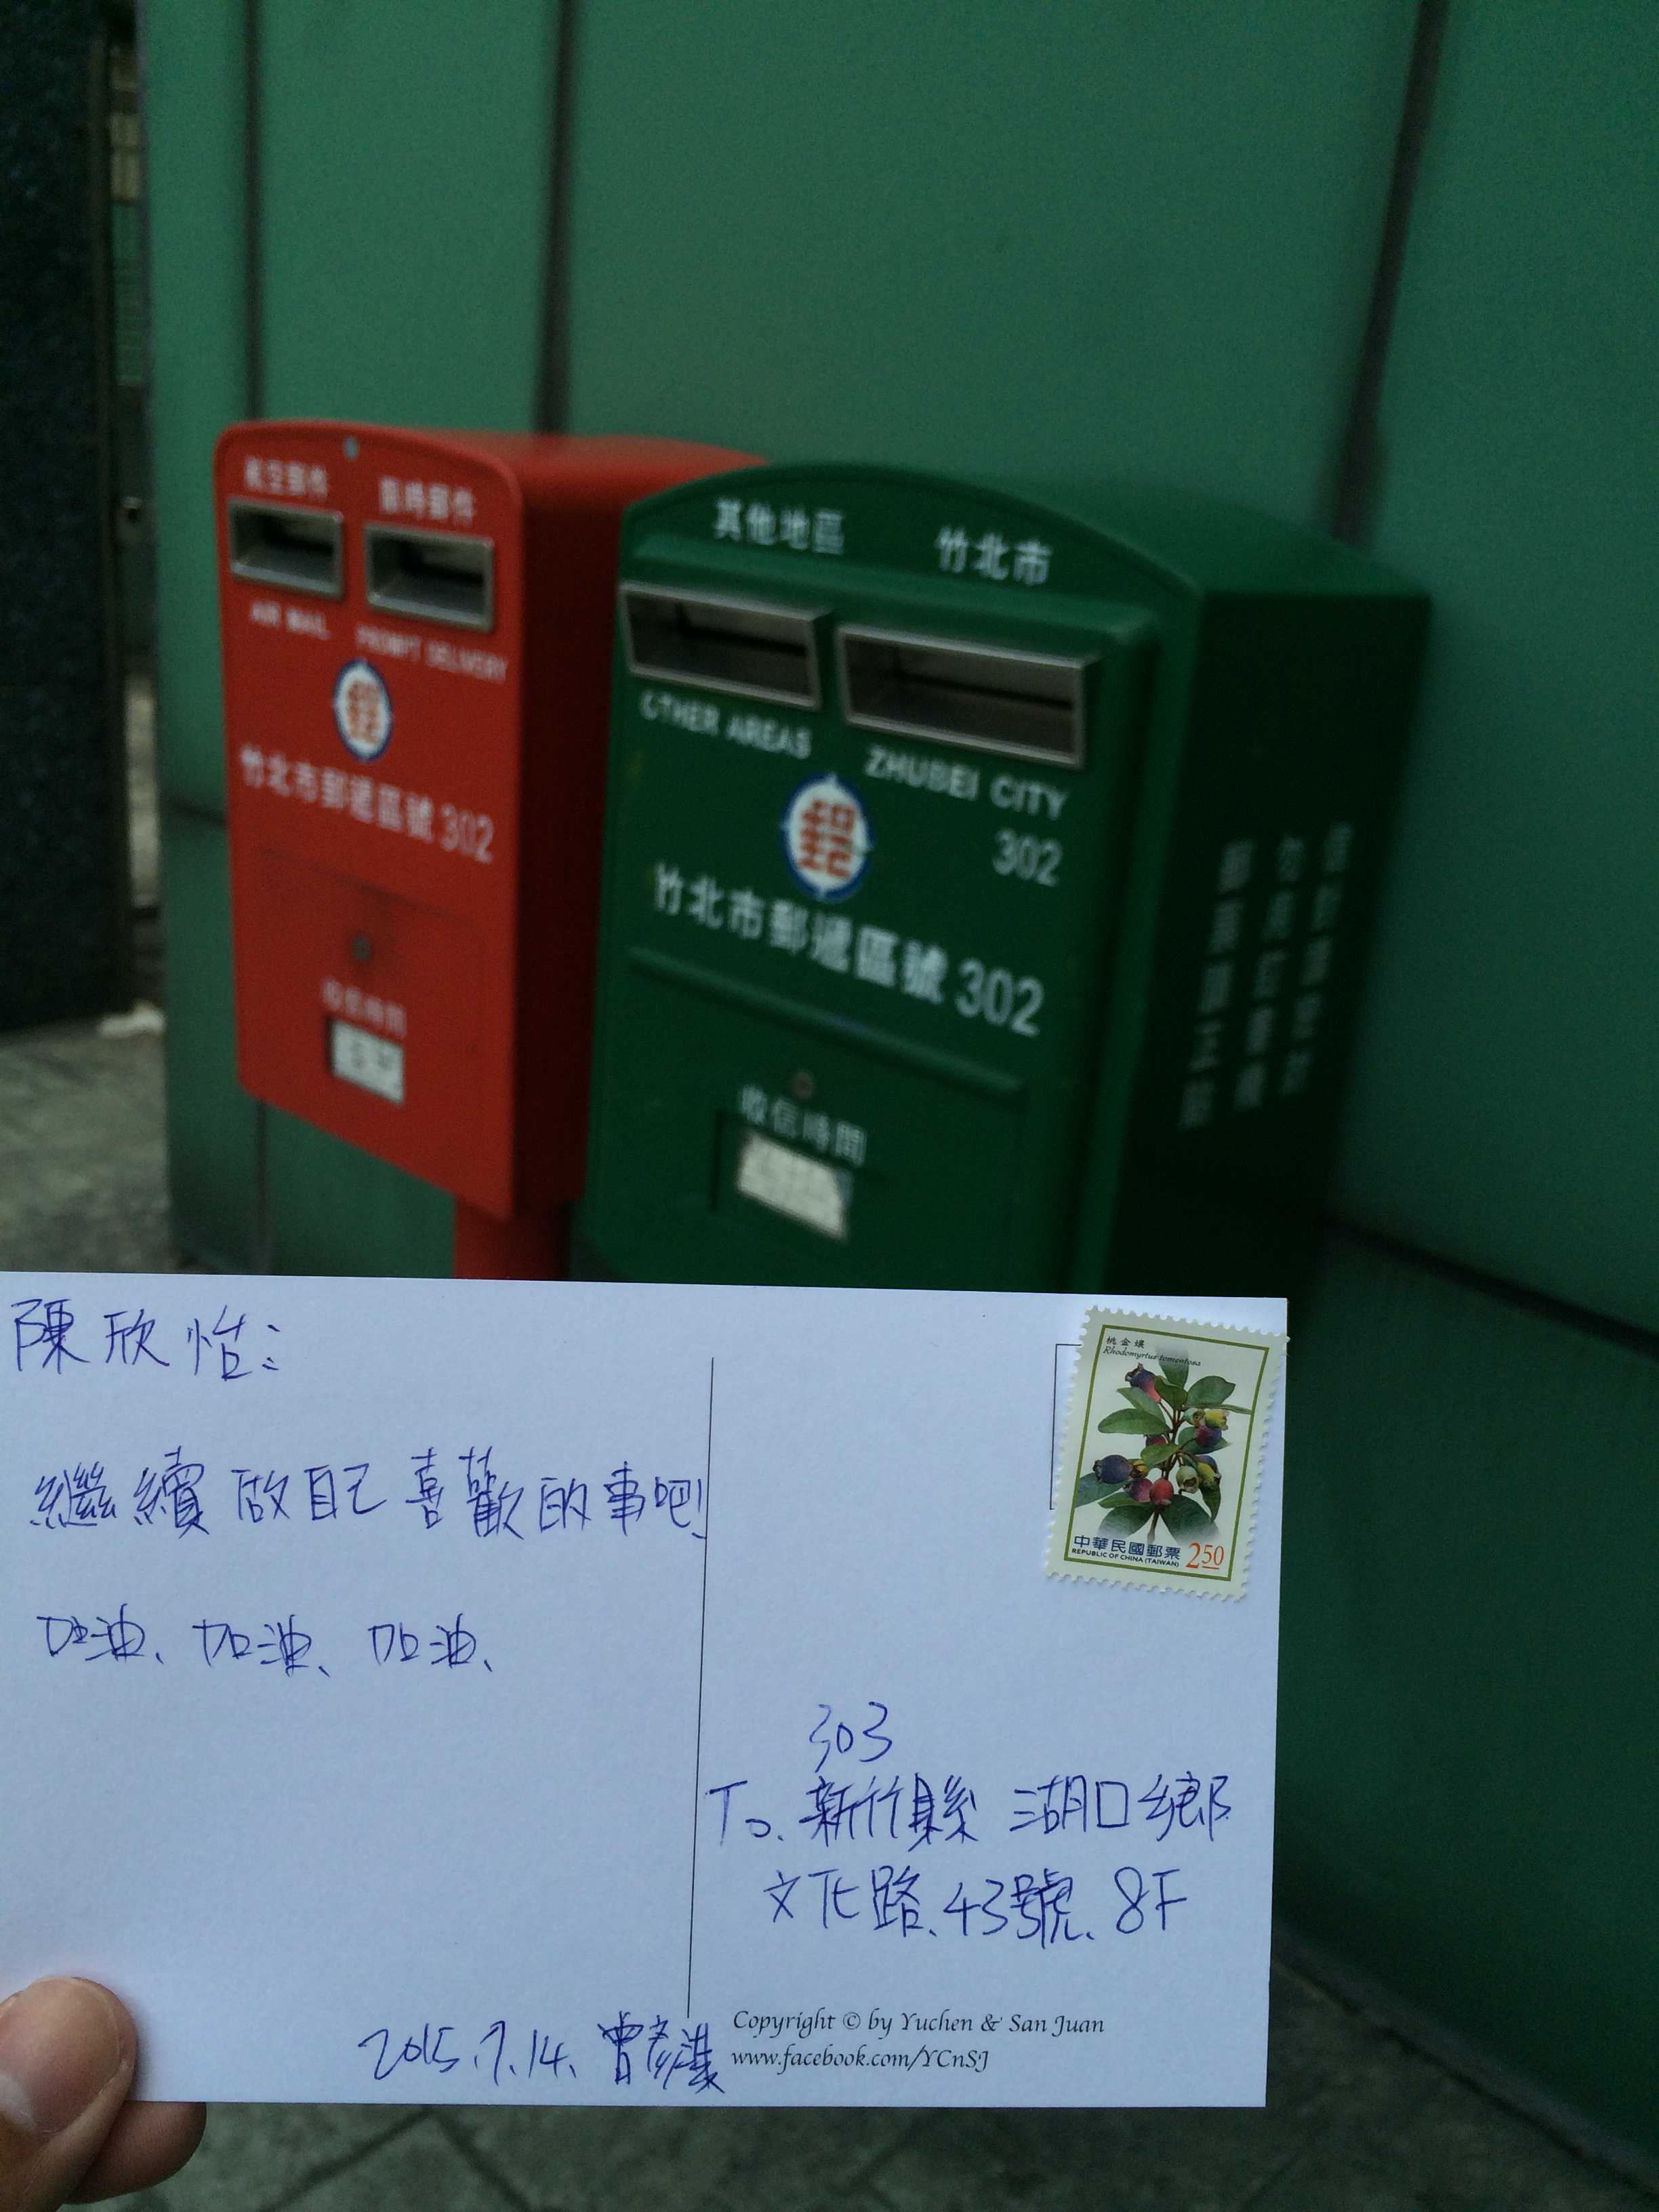 航空郵件 限時郵件
AIR MAIL PROMPT DELIVERY
郵
竹北市郵遞區號 302
收信時間
其他地區 竹北市
OTHER AREAS ZHUBEI CITY
302
郵
竹北市郵遞區號 302
收信時間
陳欣怡:
繼續做自己喜歡的事吧!
加油、加油、加油、
2015.7.14.
桃金孃
Rhodomyrtus tomentosa
中華民國郵票
REPUBLIC OF CHINA (TAIWAN)
250
303
To. 新竹縣 湖口鄉
文化路、43號、8F
Copyright © by Yuchen & San Juan
www.facebook.com/YCnSJ